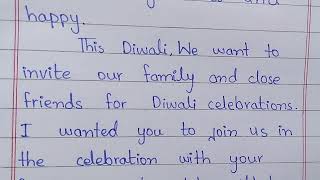 happy.
This Diwali. We want to
invite our family and close
friends for Diwali celebrations.
I wanted you to join us in
the celebration with your